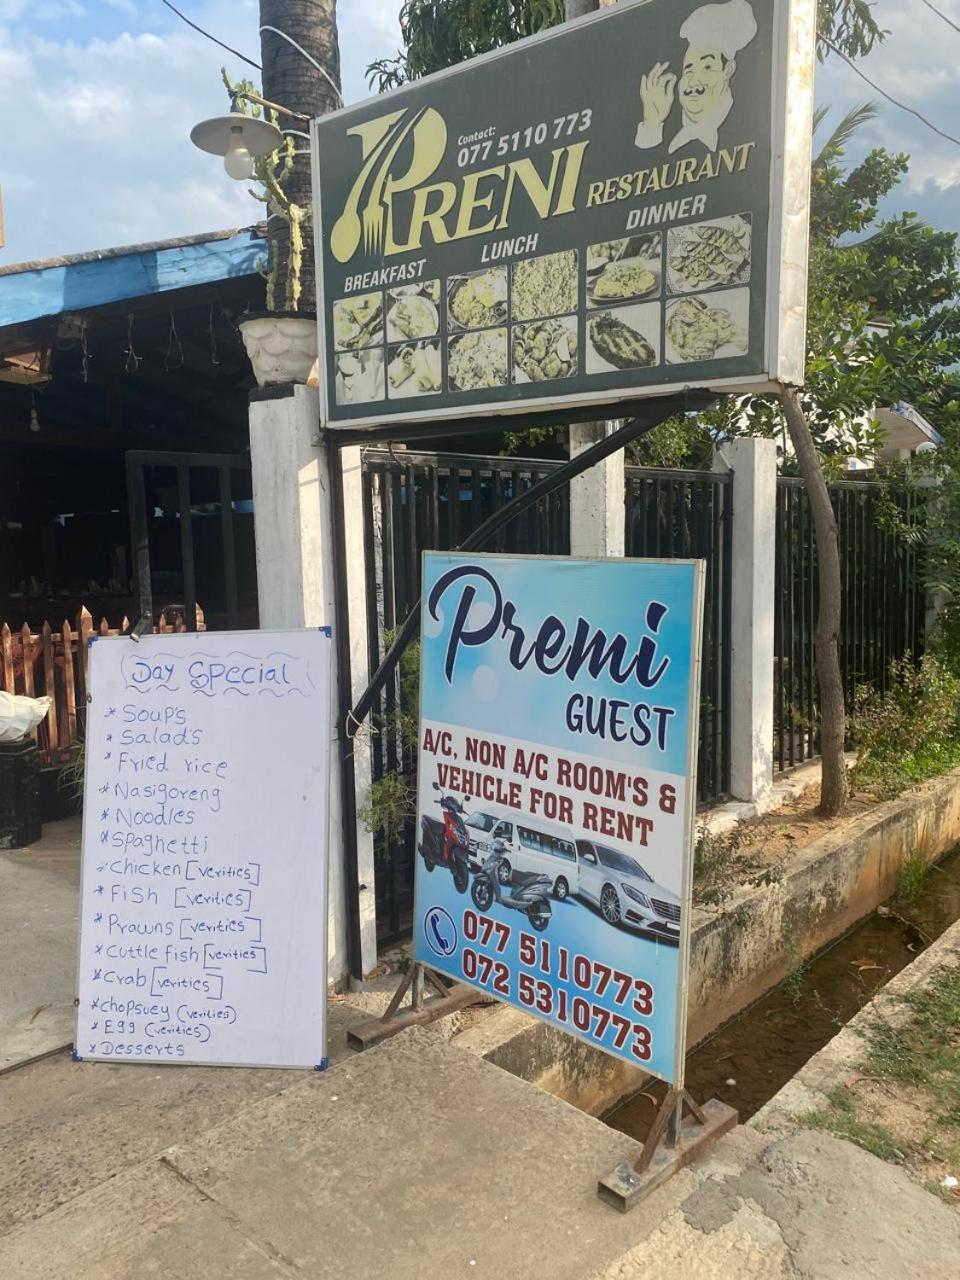 Contact:
077 5110 773
PRENI RESTAURANT
BREAKFAST LUNCH DINNER
Premi
GUEST
A/C, NON A/C ROOM'S &
VEHICLE FOR RENT
077 5110773
072 5310773
Day Special
* Soup's
* Salad's
* Fried rice
* Nasigoreng
* Noodles
* Spaghetti
* Chicken [verities]
* Fish [verities]
* Prawns [verities]
* Cuttle fish [verities]
* Crab [verities]
* chopsuey (verities)
* Egg (verities)
* Desserts